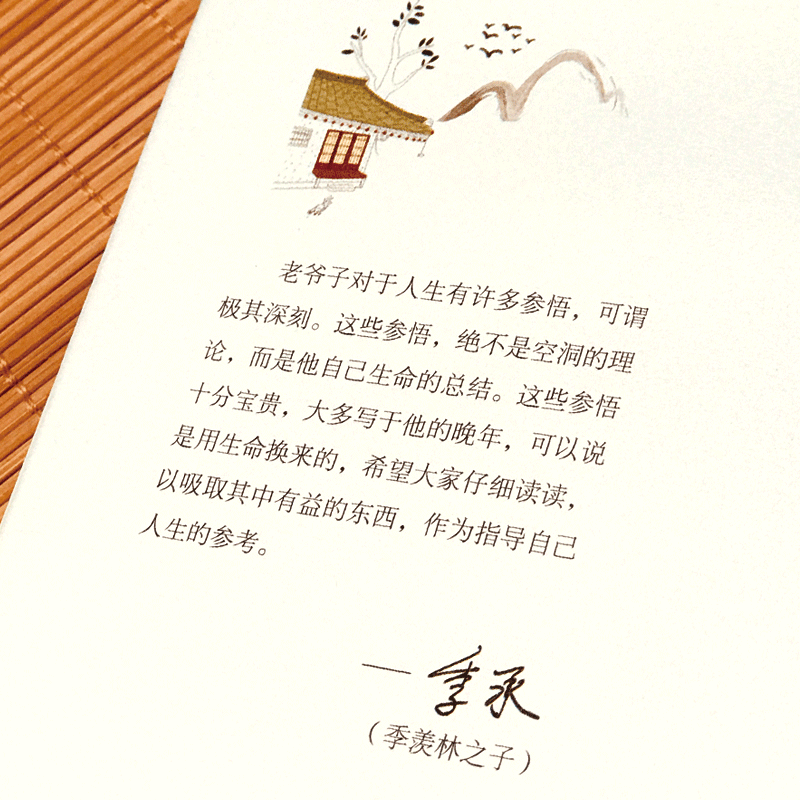 老爷子对于人生有许多参悟，可谓
极其深刻。这些参悟，绝不是空洞的理
论，而是他自己生命的总结。这些参悟
十分宝贵，大多写于他的晚年，可以说
是用生命换来的，希望大家仔细读读，
以吸取其中有益的东西，作为指导自己
人生的参考。
—季承
（季羡林之子）